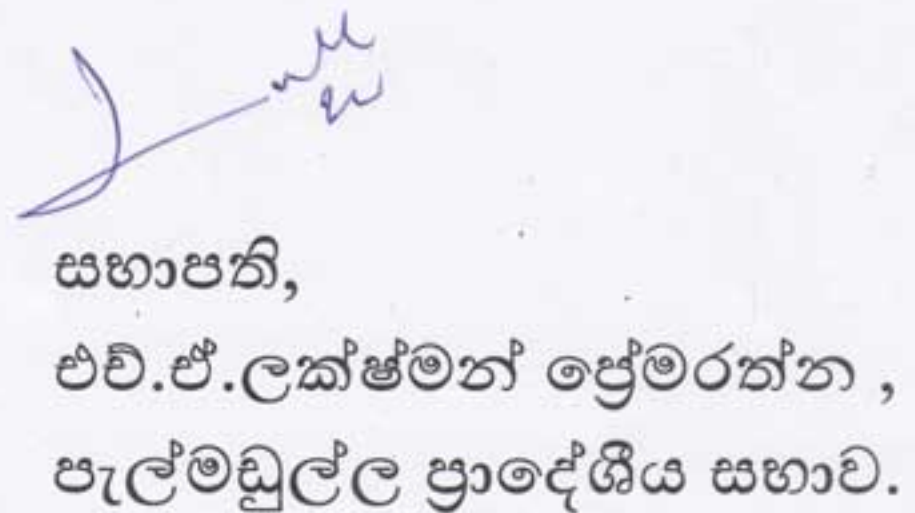 සභාපති,
එච්.ඒ.ලක්ෂ්මන් ප්‍රේමරත්න ,
පැල්මඩුල්ල ප්‍රාදේශීය සභාව.